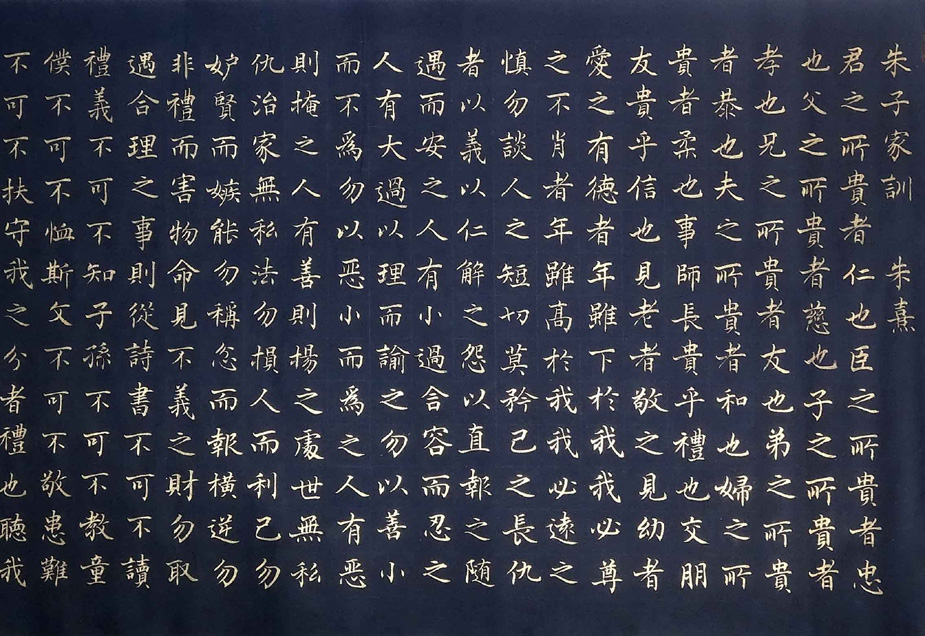 朱子家訓　朱熹
君之所貴者仁也臣之所貴者忠
也父之所貴者慈也子之所貴者
孝也兄之所貴者友也弟之所貴
者恭也夫之所貴者和也婦之所
貴者柔也事師長貴乎禮也交朋
友貴乎信也見老者敬之見幼者
愛之有德者年雖下於我我必尊
之不肖者年雖高於我我必遠之
慎勿談人之短切莫矜己之長仇
者以義以仁解之怨以直報之随
遇而安之人有小過含容而忍之
人有大過以理而諭之勿以善小
而不為勿以惡小而為之人有惡
則掩之人有善則揚之處世無私
仇治家無私法勿損人而利己勿
妒賢而嫉能勿稱忿而報橫逆勿
非禮而害物命見不義之財勿取
遇合理之事則從詩書不可不讀
禮義不可不知子孫不可不教童
僕不可不恤斯文不可不敬患難
不可不扶守我之分者禮也聽我